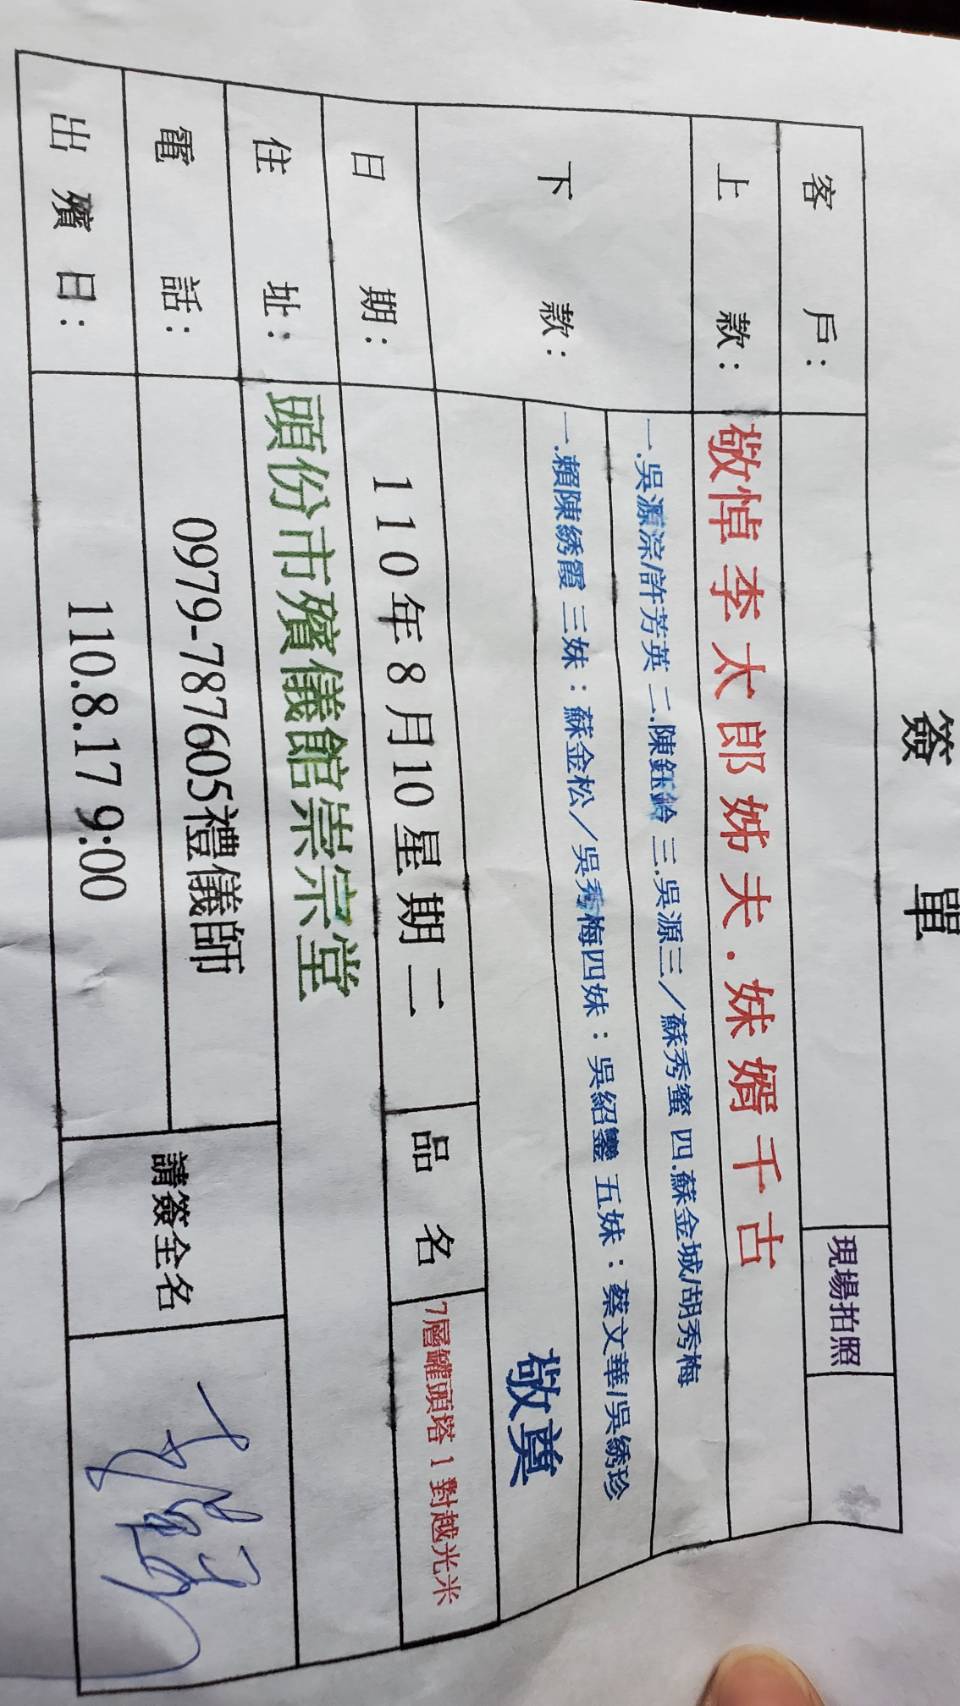 簽 單
客 戶：
現場拍照
上 款： 敬悼李太郎姊夫.妹婿千古
下 款：
一.吳源淙/許芳英 二.陳鈺鈴 三.吳源三／蘇秀蜜 四.蘇金城/胡秀梅
一.賴陳綉霞 三妹：蘇金松／吳秀梅四妹：吳紹鑾 五妹：蔡文華/吳綉珍
敬奠
日 期： 110年8月10星期二 品 名 7層罐頭塔1對越光米
住 址： 頭份市殯儀館崇宗堂
電 話： 0979-787605禮儀師
請簽全名
出殯日： 110.8.17 9:00